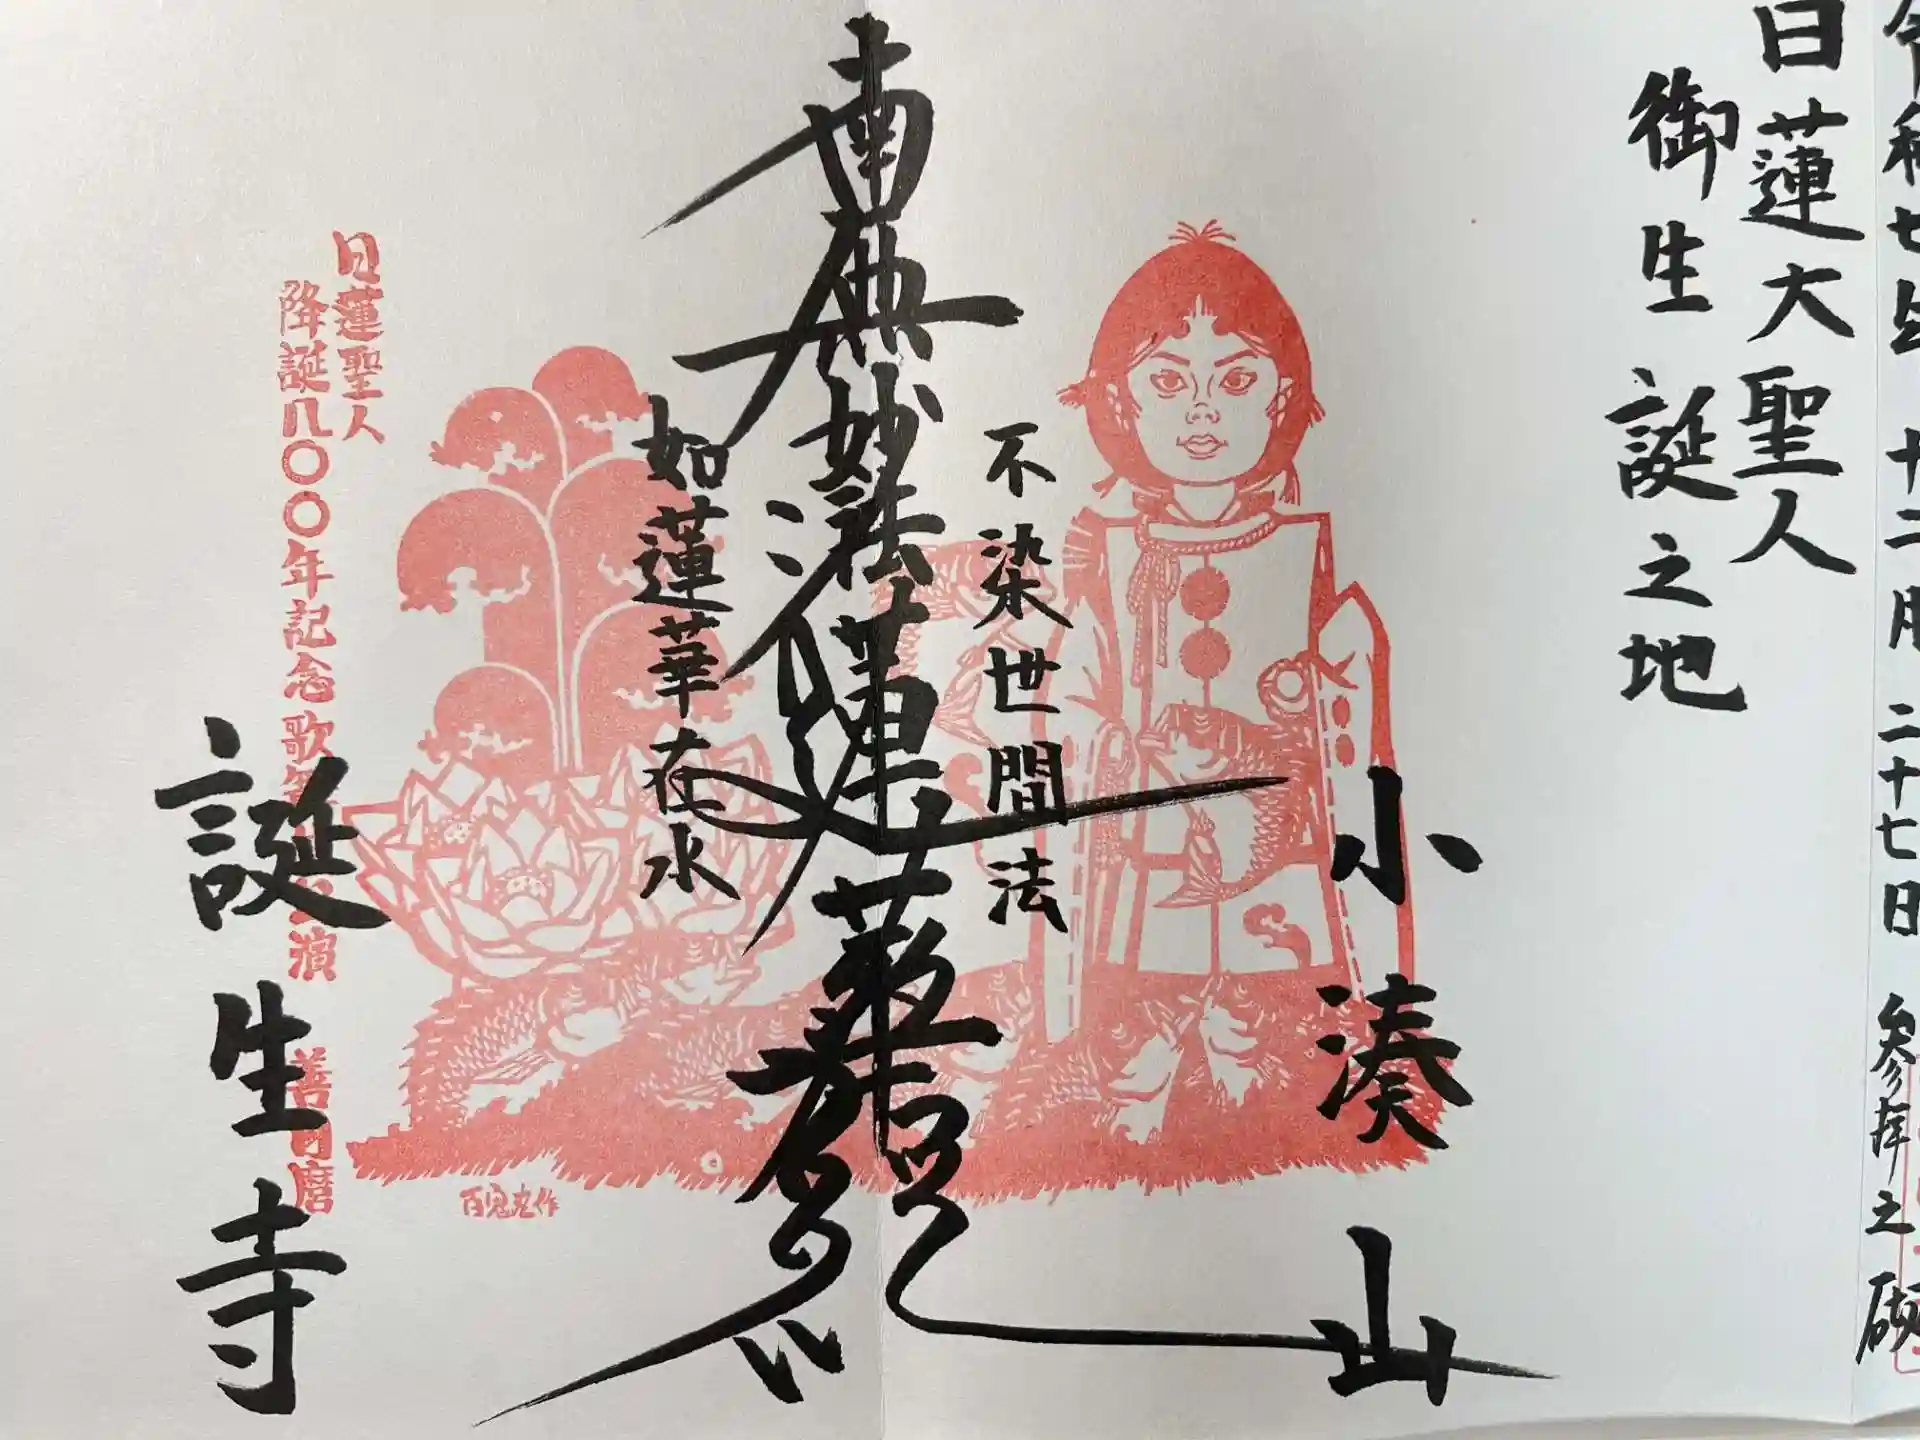 令和七年 十二月 二十七日 参拝之砌
日蓮大聖人
御生誕之地
小湊山
不染世間法
南無妙法蓮華經
如蓮華在水
誕生寺
日蓮聖人
降誕八〇〇年記念歌舞 公演 善日麿